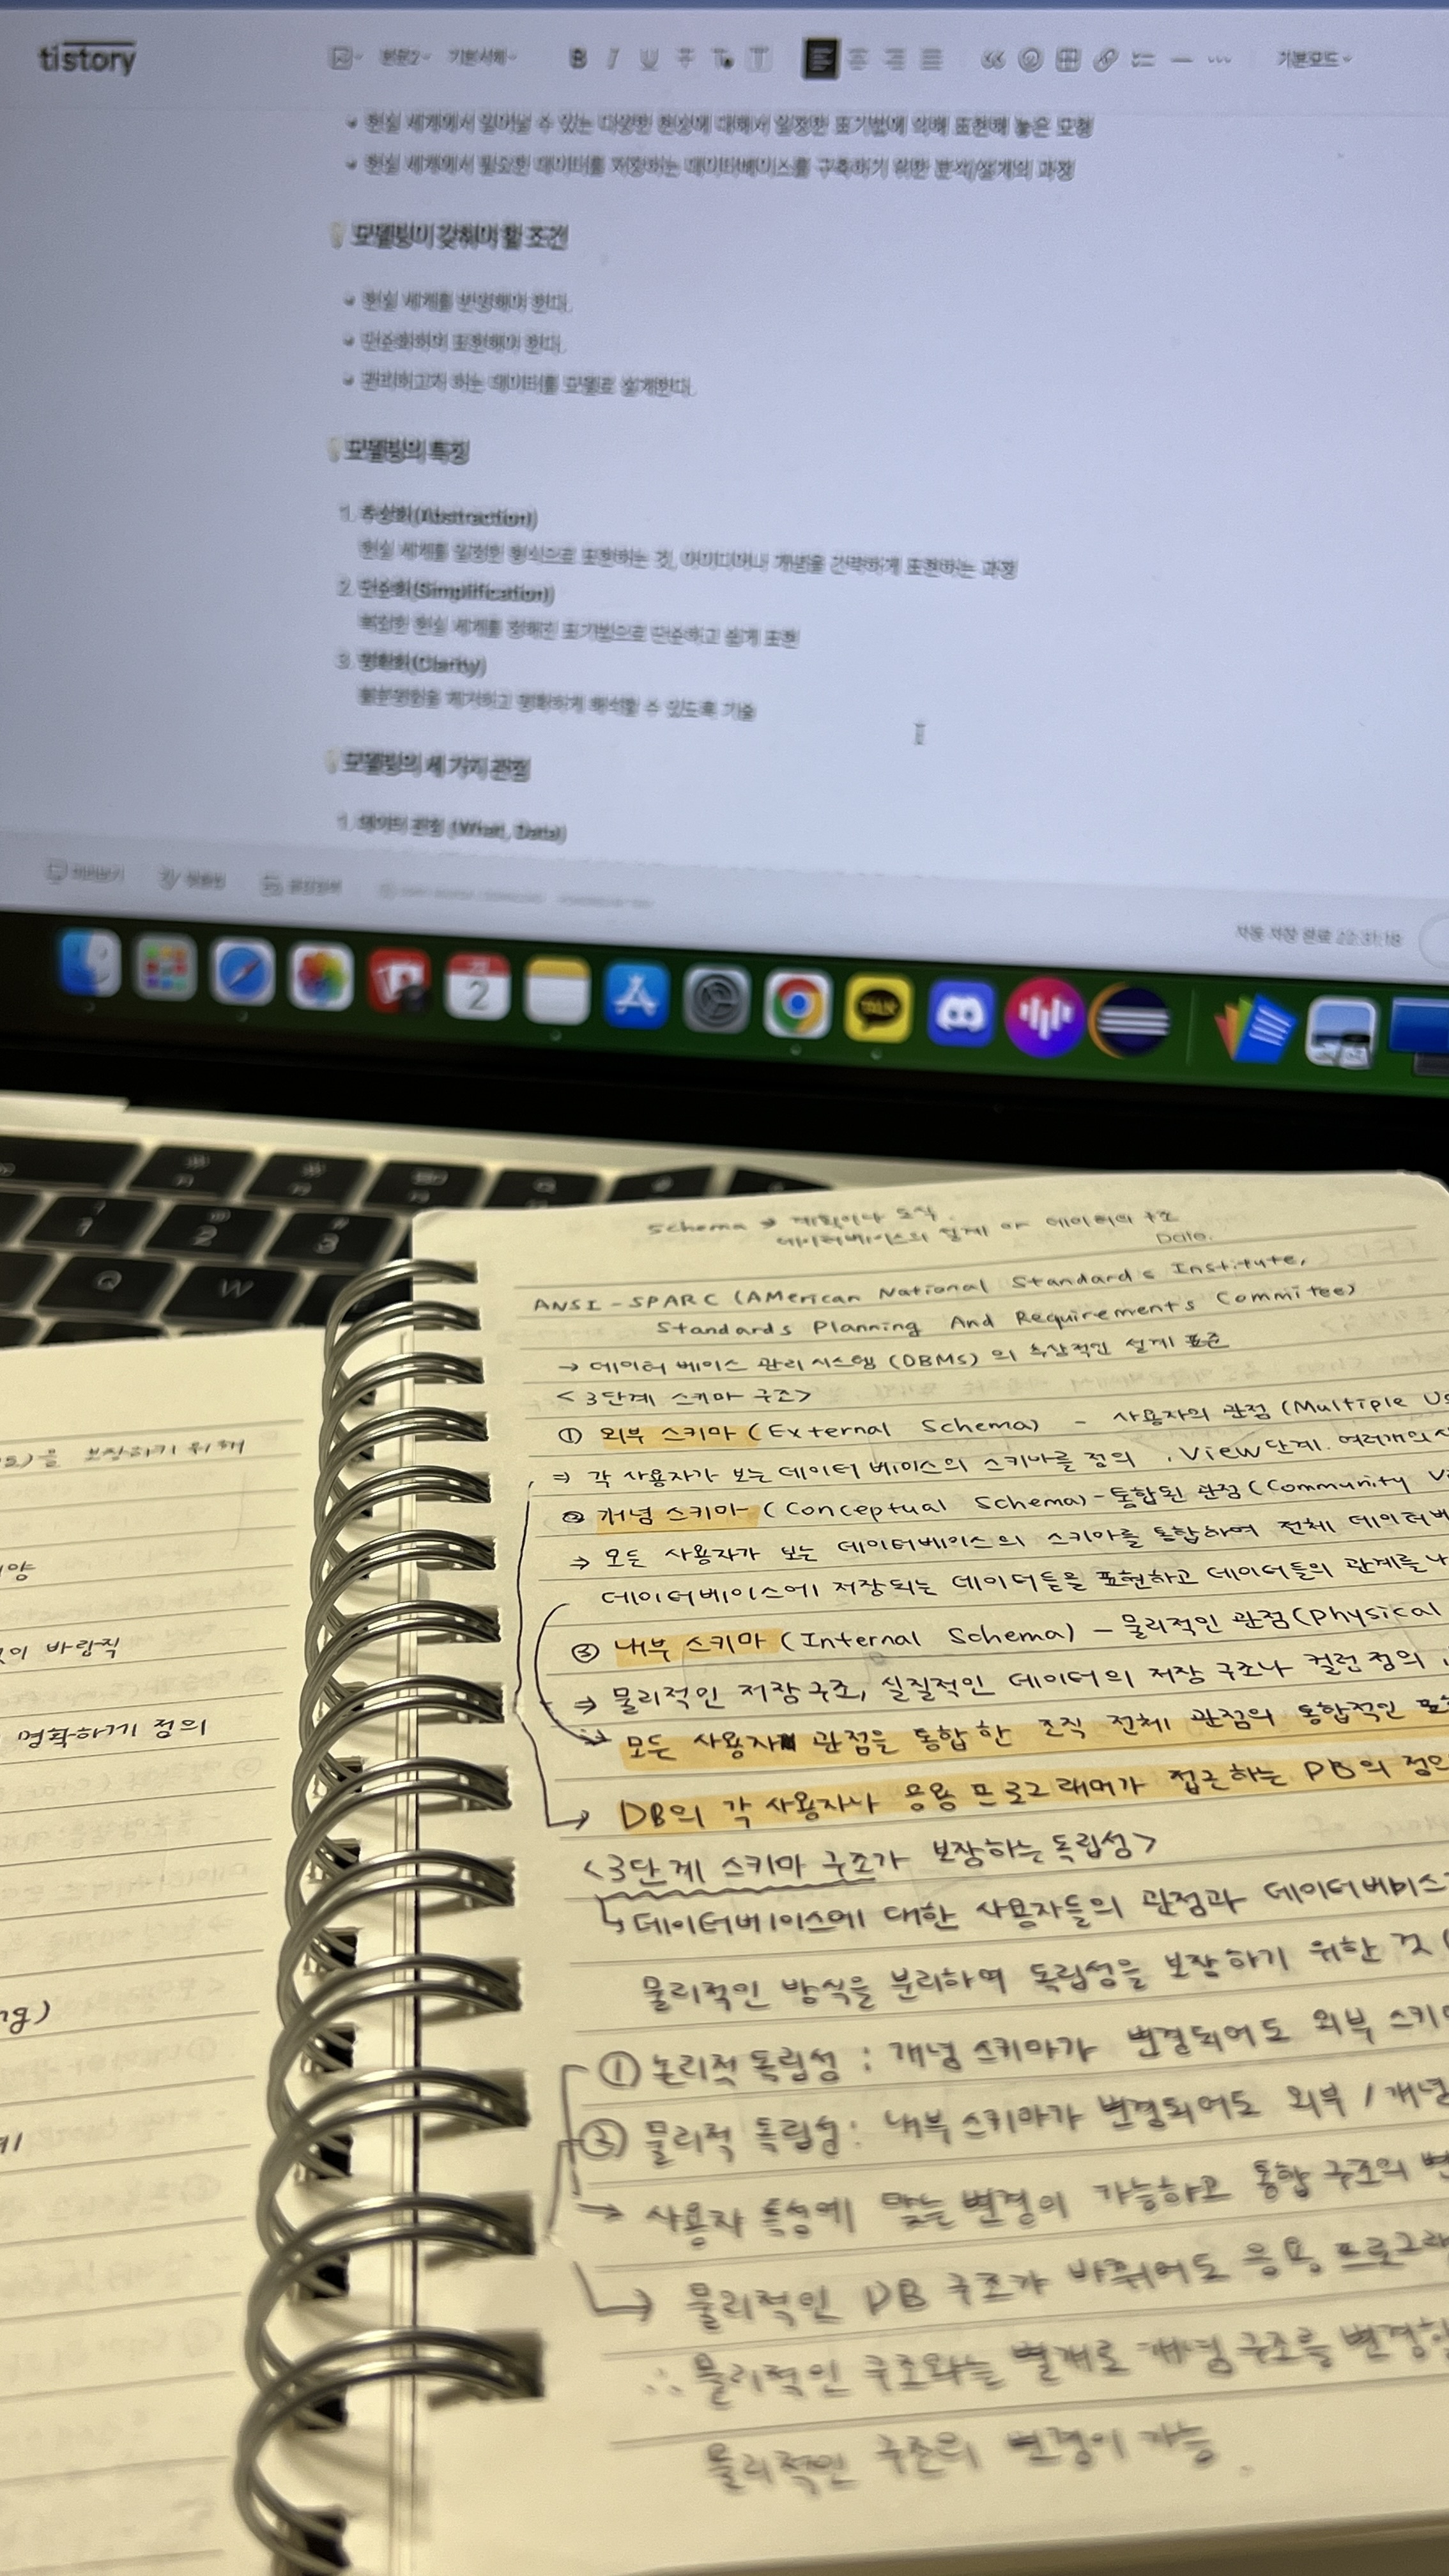 tistory
본문2 기본서체 B I U T T T 기본모드
현실 세계에서 일어날 수 있는 다양한 현상에 대해서 일정한 표기법에 의해 표현해 놓은 모형
현실 세계에서 필요한 데이터를 저장하는 데이터베이스를 구축하기 위한 분석/설계의 과정
모델링이 갖춰야 할 조건
현실 세계를 반영해야 한다.
단순화하여 표현해야 한다.
관리하고자 하는 데이터를 모델로 설계한다.
모델링의 특징
1. 추상화(Abstraction)
현실 세계를 일정한 형식으로 표현하는 것, 아이디어나 개념을 간략하게 표현하는 과정
2. 단순화(Simplification)
복잡한 현실 세계를 정해진 표기법으로 단순하고 쉽게 표현
3. 명확화(Clarity)
불분명함을 제거하고 명확하게 해석할 수 있도록 기술
모델링의 세 가지 관점
1. 데이터 관점 (What, Data)
미리보기 맞춤법
자동 저장 완료 22:31:18
2
TALK
1 2 3
Q W
Schema → 계획이나 도식
데이터베이스의 설계 or 데이터의 구조
Date.
ANSI - SPARC (AMerican National Standards Institute,
Standards Planning And Requirements Commitee)
→ 데이터 베이스 관리 시스템 (DBMS) 의 추상적인 설계 표준
< 3단계 스키마 구조>
① 외부 스키마 (External Schema) - 사용자의 관점 (Multiple Us
⇒ 각 사용자가 보는 데이터 베이스의 스키마를 정의 . View단계. 여러개의
② 개념 스키마 (Conceptual Schema) - 통합된 관점 (Community Vi
⇒ 모든 사용자가 보는 데이터베이스의 스키마를 통합하여 전체 데이터베
데이터베이스에 저장되는 데이터들을 표현하고 데이터들의 관계를 나
③ 내부 스키마 (Internal Schema) - 물리적인 관점 (Physical
⇒ 물리적인 저장구조, 실질적인 데이터의 저장 구조나 컬럼 정의 .
모든 사용자 관점을 통합한 조직 전체 관점의 통합적인 표
DB의 각 사용자나 응용 프로그래머가 접근하는 DB의 정의
<3단계 스키마 구조가 보장하는 독립성>
↳ 데이터베이스에 대한 사용자들의 관점과 데이터베이스
물리적인 방식을 분리하여 독립성을 보장하기 위한 것
① 논리적 독립성 : 개념 스키마가 변경되어도 외부 스키
② 물리적 독립성 : 내부 스키마가 변경되어도 외부 / 개념
→ 사용자 특성에 맞는 변경이 가능하고 통합 구조의 변
→ 물리적인 DB 구조가 바뀌어도 응용 프로그래
∴ 물리적인 구조와는 별개로 개념 구조를 변경하
물리적인 구조의 변경이 가능
을 보장하기 위해
양
이 바람직
명확하게 정의
ng)